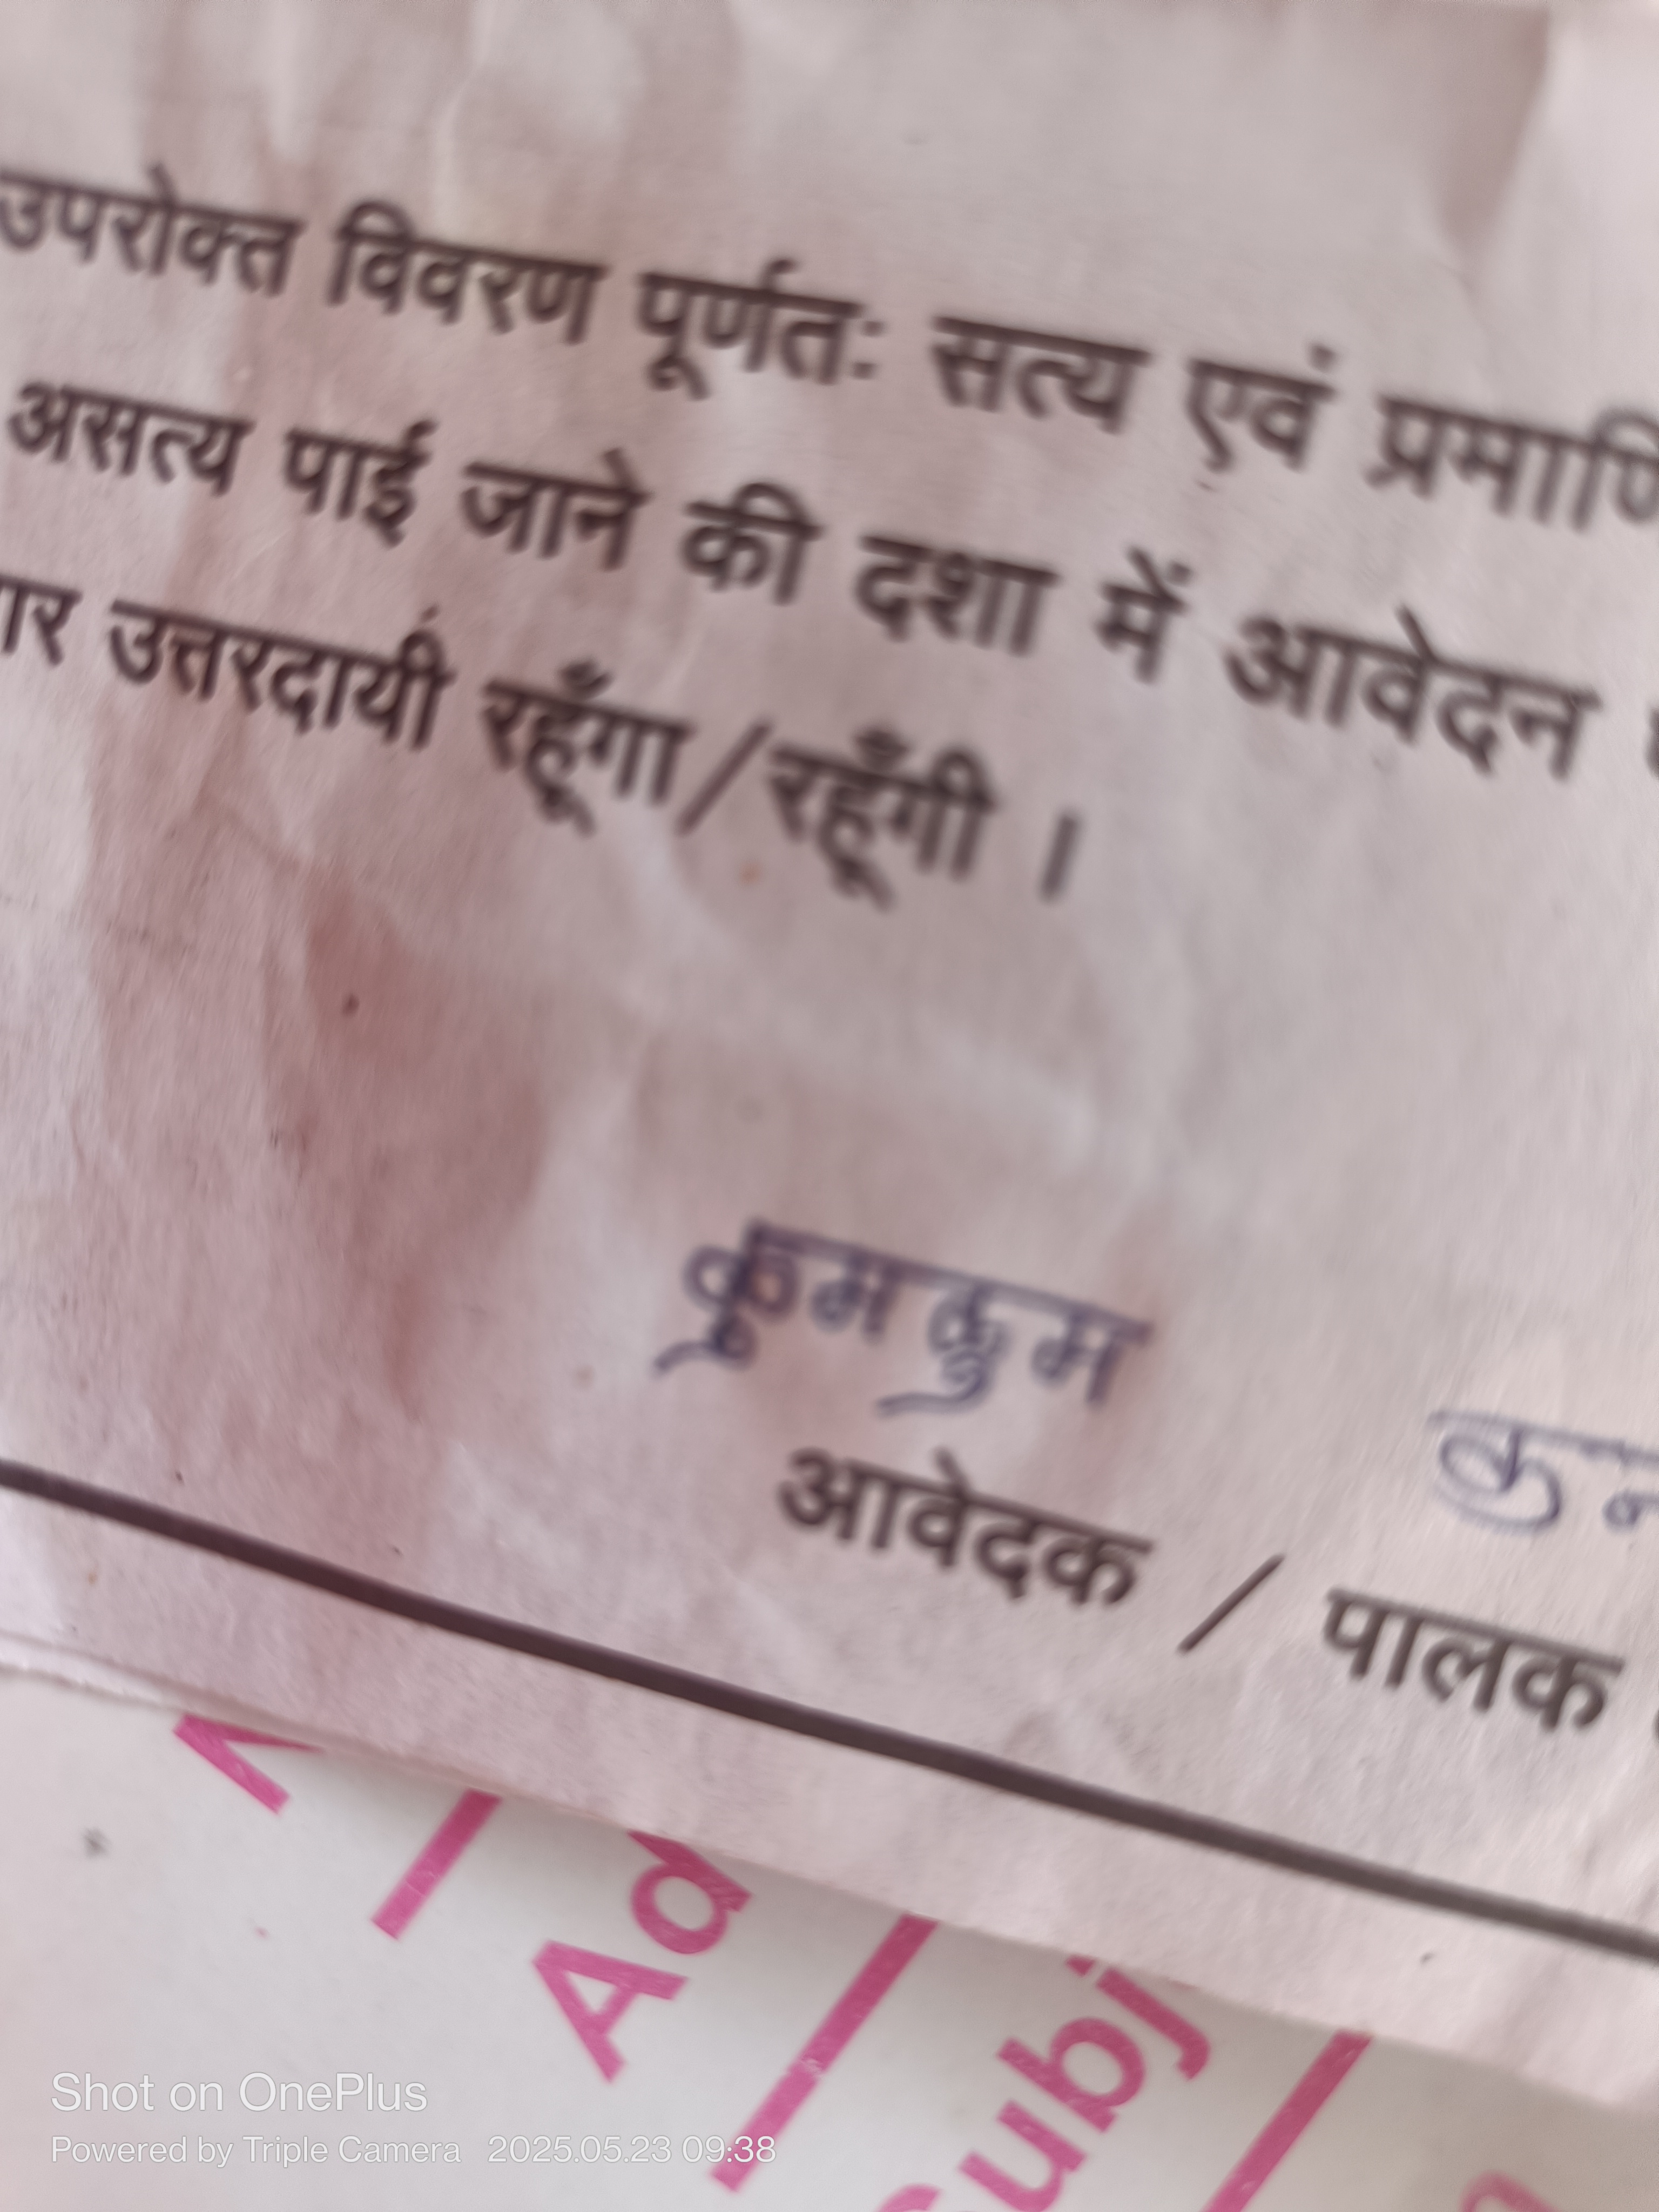 उपरोक्त विवरण पूर्णतः सत्य एवं
असत्य पाई जाने की दशा में आवेदन
उत्तरदायी रहूँगा/रहूँगी ।
कुमकुम
आवेदक / पालक
Ad
Subj
Shot on OnePlus
Powered by Triple Camera 2025.05.23 09:38